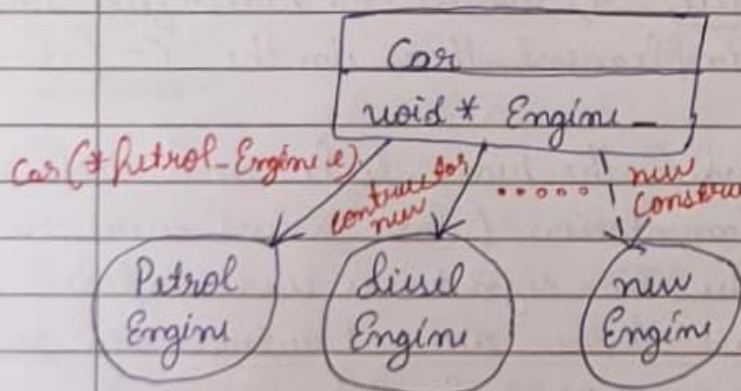 Car
void * Engine_
Car(*Petrol_Engine e)
contructor
new
.....
new
Constru
Petrol
Engine
diesel
Engine
new
Engine